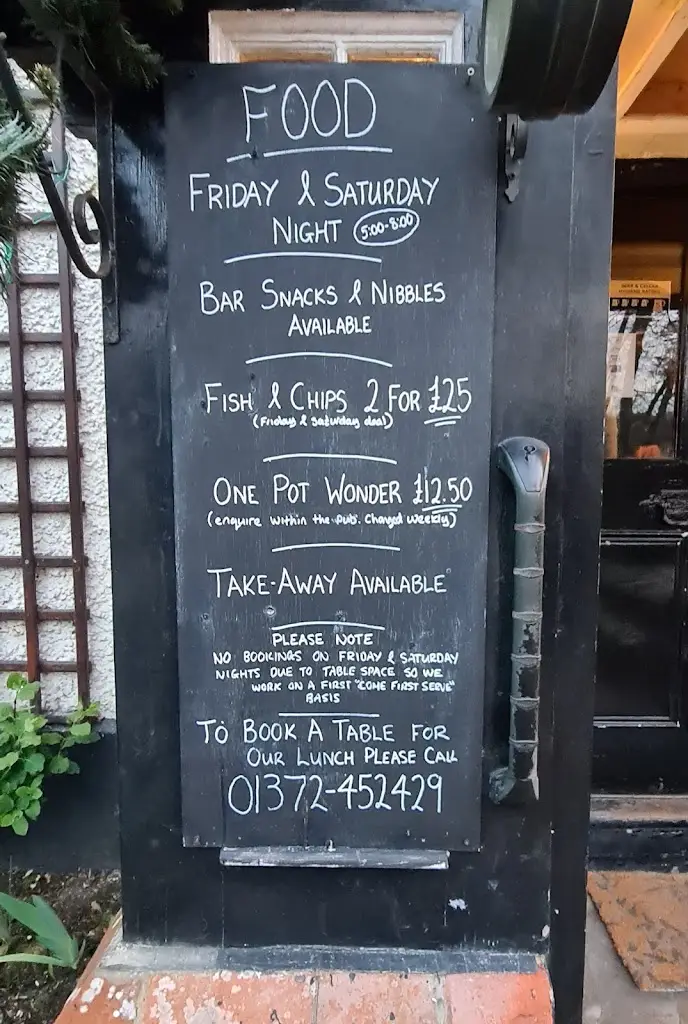 FOOD
FRIDAY & SATURDAY
NIGHT 5:00-8:00
BAR SNACKS & NIBBLES
AVAILABLE
FISH & CHIPS 2 FOR £25
(Friday & Saturday deal)
ONE POT WONDER £12.50
(enquire within the pub. Changed weekly)
TAKE-AWAY AVAILABLE
PLEASE NOTE
NO BOOKINGS ON FRIDAY & SATURDAY
NIGHTS DUE TO TABLE SPACE SO WE
WORK ON A FIRST "COME FIRST SERVE"
BASIS
TO BOOK A TABLE FOR
OUR LUNCH PLEASE CALL
01372-452429